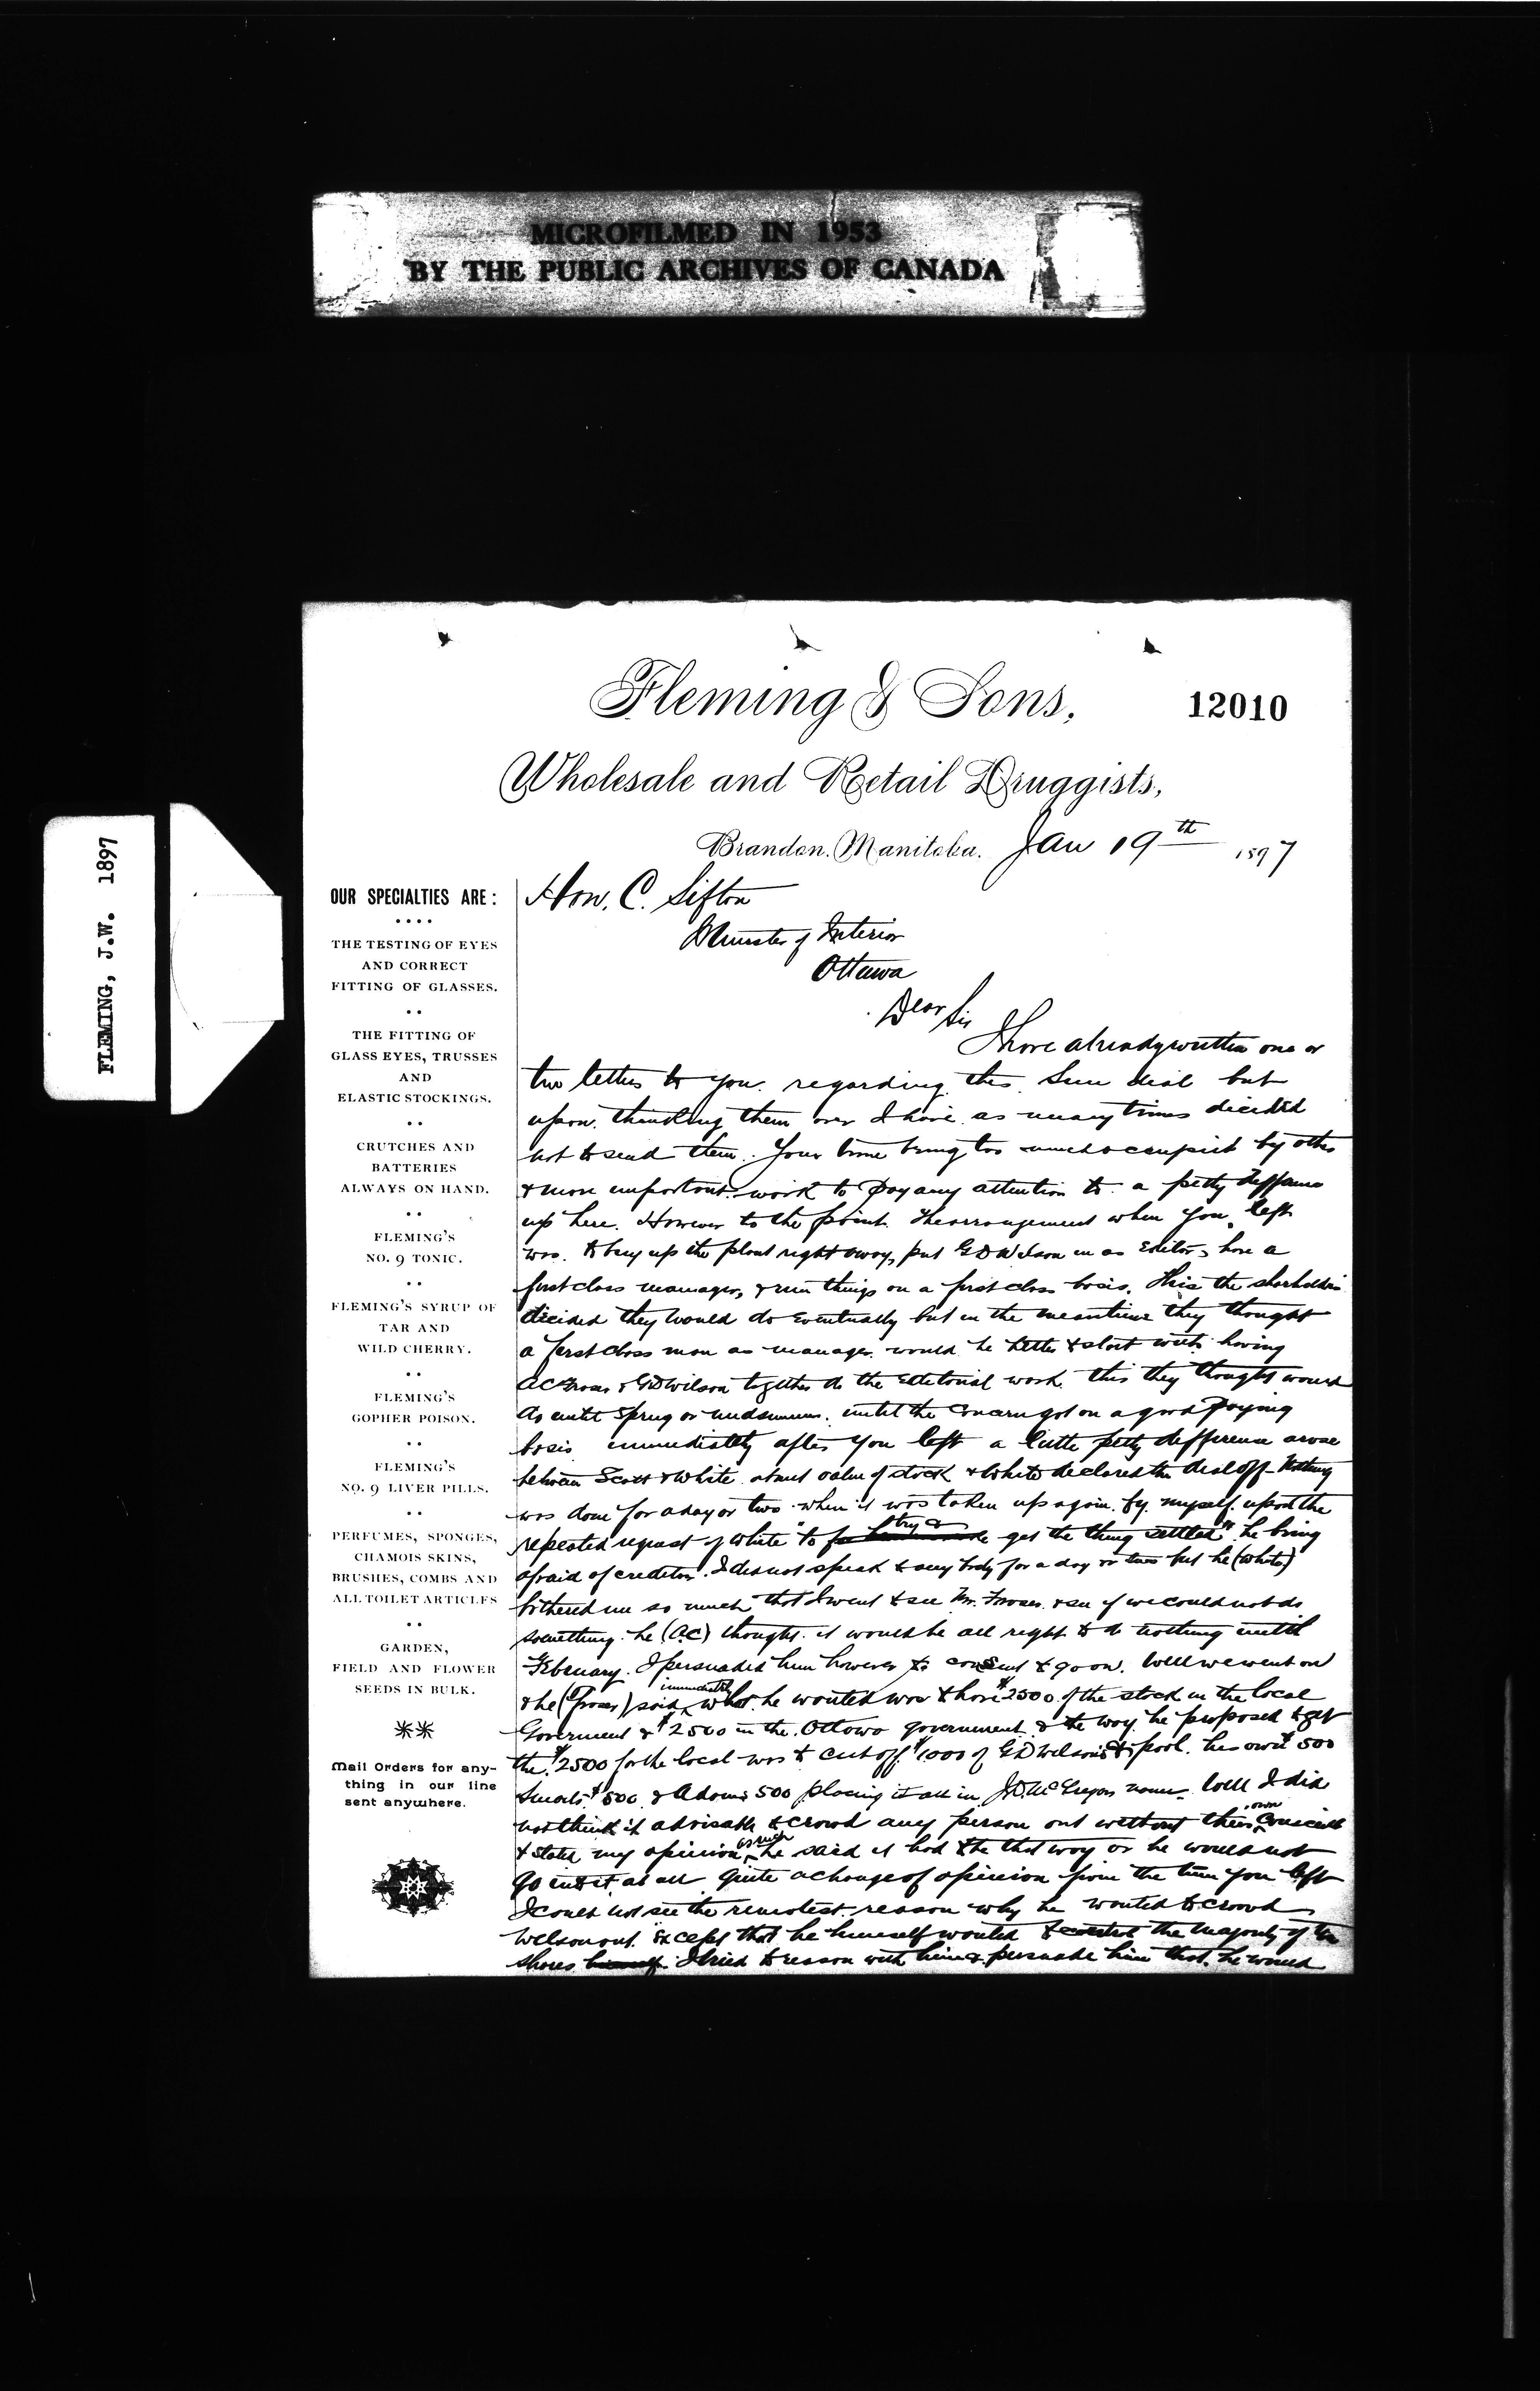 MICROFILMED IN 1953
BY THE PUBLIC ARCHIVES OF CANADA
FLEMING, J.W. 1897
Fleming & Sons,
12010
Wholesale and Retail Druggists,
Brandon, Manitoba. Jan 19th 1897
OUR SPECIALTIES ARE:
THE TESTING OF EYES
AND CORRECT
FITTING OF GLASSES.
THE FITTING OF
GLASS EYES, TRUSSES
AND
ELASTIC STOCKINGS.
CRUTCHES AND
BATTERIES
ALWAYS ON HAND.
FLEMING'S
NO. 9 TONIC.
FLEMING'S SYRUP OF
TAR AND
WILD CHERRY.
FLEMING'S
GOPHER POISON.
FLEMING'S
NO. 9 LIVER PILLS.
PERFUMES, SPONGES,
CHAMOIS SKINS,
BRUSHES, COMBS AND
ALL TOILET ARTICLES
GARDEN,
FIELD AND FLOWER
SEEDS IN BULK.
Mail Orders for any-
thing in our line
sent anywhere.
Hon. C. Sifton
Minister of Interior
Ottawa
Dear Sir
I have already written one or
two letters to you regarding this Sun deal but
upon thinking them over I have as many times decided
not to send them. Your time being too much occupied by other
& more important work to pay any attention to a petty
up here. However to the point. The arrangement when you left
was to buy up the plant right away, put G D Wilson in as Editor, have a
first class manager, & run things on a first class basis. This the shareholders
decided they would do eventually but in the meantime they thought
a first class man as manager would be better to start with having
A C Fraser & G D Wilson together do the editorial work. this they thought would
do until Spring or midsummer. until the concern got on a good paying
basis immediately after you left a little petty difference arose
between Scott & White about value of stock & White declared the deal off - Nothing
was done for a day or two when it was taken up again by myself upon the
repeated request of White "to try & get the thing settled" he being
afraid of creditors. I did not speak to any body for a day or two but he (White)
bothered me so much that I went to see Mr. Fraser & see if we could not do
something. he (A.C) thought it would be all right to do nothing until
February. I persuaded him however to consent to go on. Well we went on
& he (Fraser) said immediately what he wanted was to have $2500 of the stock in the local
Government & $2500 in the Ottawa government & the way he proposed to get
the $2500 for the local was to cut off $1000 of G D Wilson's pool. his own $500
$500 & Adams 500 placing it all in J.D. McGregors name. Well I did
not think it advisable to crowd any person out without their own consent
& stated my opinion as such he said it had to be that way or he would not
go into it at all. Quite a change of opinion from the time you left
I could not see the remotest reason why he wanted to crowd
Wilson out. Except that he himself wanted to control the majority of the
shares I tried to reason with him & persuade him that he would